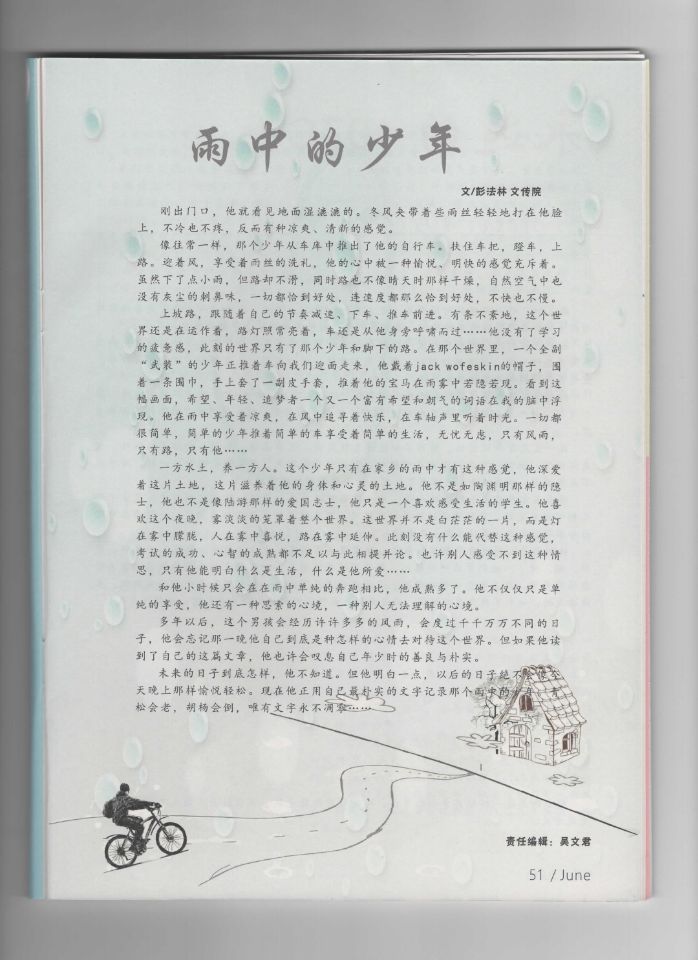 雨中的少年
文/彭法林 文传院
刚出门口，他就看见地面湿漉漉的。冬风夹带着些雨丝轻轻地打在他脸
上，不冷也不疼，反而有种凉爽、清新的感觉。
像往常一样，那个少年从车库中推出了他的自行车。扶住车把，蹬车，上
路。迎着风，享受着雨丝的洗礼，他的心中被一种愉悦、明快的感觉充斥着。
虽然下了点小雨，但路却不滑，同时路也不像晴天时那样干燥，自然空气中也
没有灰尘的刺鼻味，一切都恰到好处，连速度都那么恰到好处，不快也不慢。
上坡路，跟随着自己的节奏减速、下车、推车前进。有条不紊地，这个世
界还是在运作着，路灯照常亮着，车还是从他身旁呼啸而过……他没有了学习
的疲惫感，此刻的世界只有了那个少年和脚下的路。在那个世界里，一个全副
“武装”的少年正推着车向我们迎面走来，他戴着jack wofeskin的帽子，围
着一条围巾，手上套了一副皮手套，推着他的宝马在雨雾中若隐若现。看到这
幅画面，希望、年轻、追梦者一个又一个富有希望和朝气的词语在我的脑中浮
现。他在雨中享受着凉爽，在风中追寻着快乐，在车轴声里听着时光。一切都
很简单，简单的少年推着简单的车享受着简单的生活，无忧无虑，只有风雨，
只有路，只有他……
一方水土，养一方人。这个少年只有在家乡的雨中才有这种感觉，他深爱
着这片土地，这片滋养着他的身体和心灵的土地。他不是如陶渊明那样的隐
士，他也不是像陆游那样的爱国志士，他只是一个喜欢感受生活的学生。他喜
欢这个夜晚，雾淡淡的笼罩着整个世界。这世界并不是白茫茫的一片，而是灯
在雾中朦胧，人在雾中喜悦，路在雾中延伸。此刻没有什么能代替这种感觉，
考试的成功、心智的成熟都不足以与此相提并论。也许别人感受不到这种情
思，只有他能明白什么是生活，什么是他所爱……
和他小时候只会在在雨中单纯的奔跑相比，他成熟多了。他不仅仅只是单
纯的享受，他还有一种思索的心境，一种别人无法理解的心境。
多年以后，这个男孩会经历许许多多的风雨，会度过千千万万不同的日
子，他会忘记那一晚他自己到底是种怎样的心情去对待这个世界。但如果他读
到了自己的这篇文章，他也许会叹息自己年少时的善良与朴实。
未来的日子到底怎样，他不知道。但他明白一点，以后的日子绝不会像今
天晚上那样愉悦轻松。现在他正用自己最朴实的文字记录那个雨中的少年，青
松会老，胡杨会倒，唯有文字永不凋零……
责任编辑：吴文君
51 / June